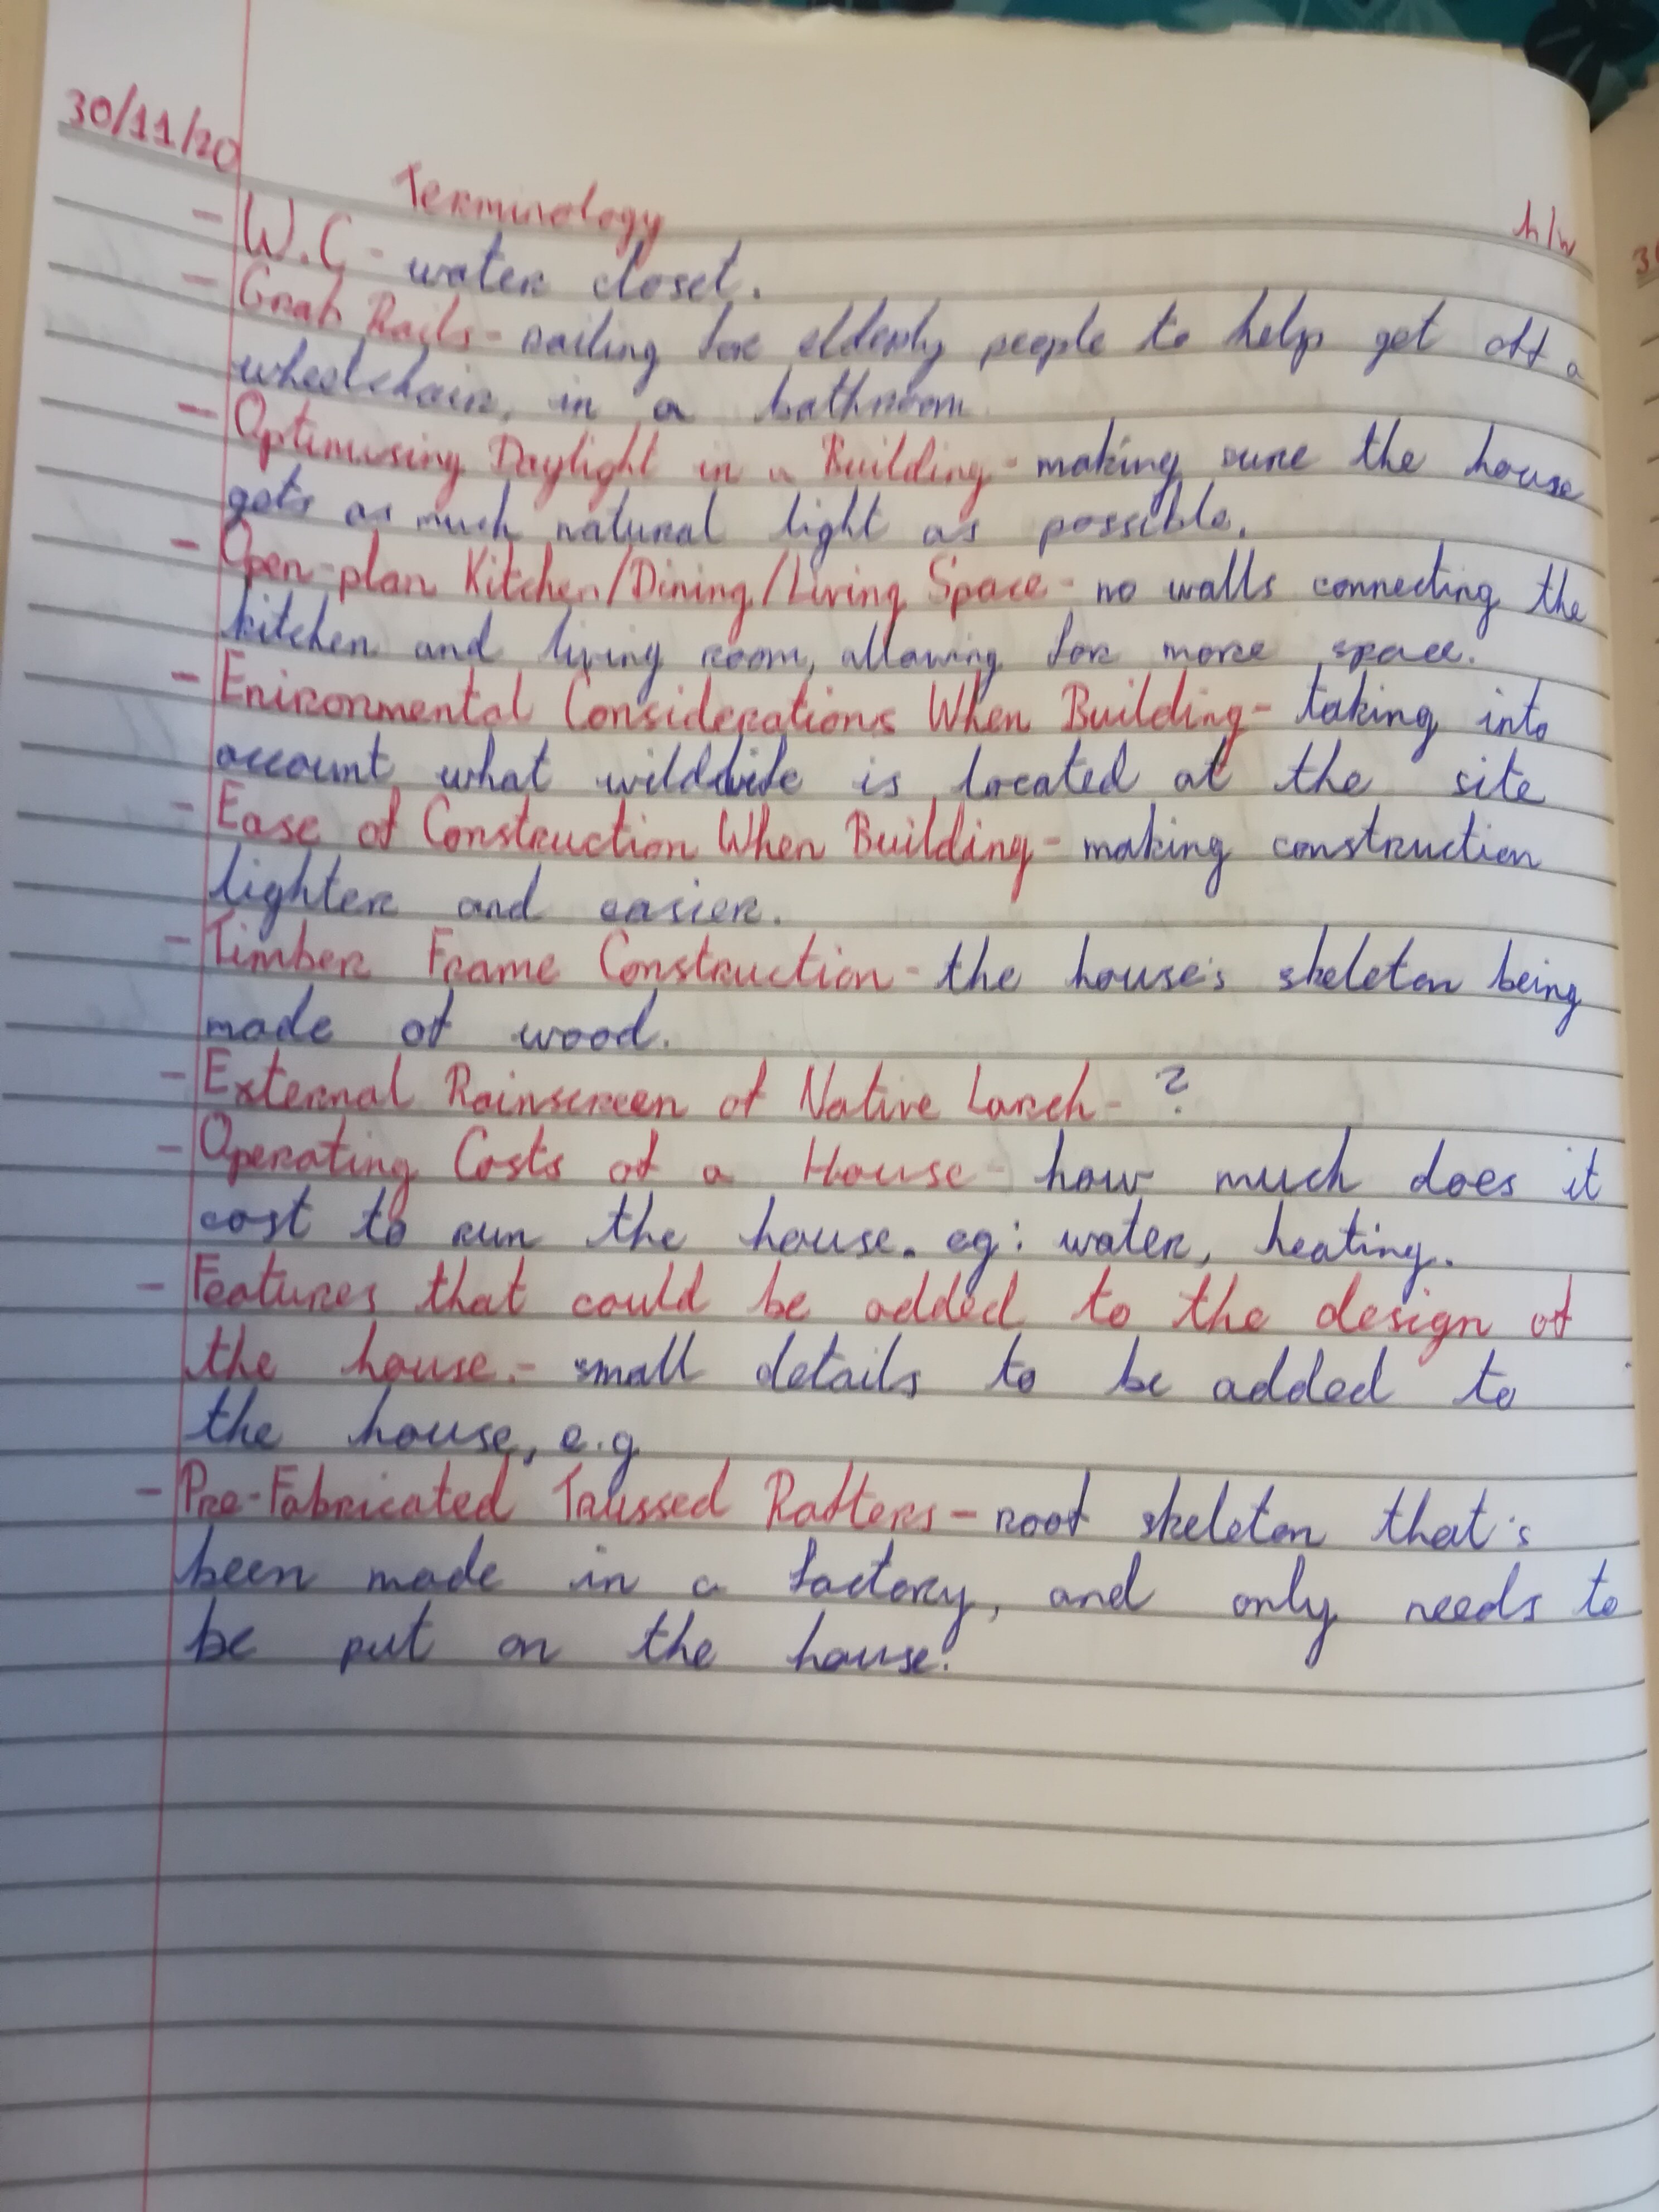 30/11/20
Terminology
h/w
- W.C - water closet.
- Grab Rails - railing for elderly people to help get off a
wheelchair, in a bathroom
- Optimising Daylight in a Building - making sure the house
gets as much natural light as possible.
- Open-plan Kitchen/Dining/Living Space - no walls connecting the
kitchen and living room, allowing for more space.
- Enironmental Considerations When Building - taking into
account what wildlife is located at the site
- Ease of Construction When Building - making construction
lighter and easier.
- Timber Frame Construction - the house's skeleton being
made of wood.
- External Rainscreen of Native Larch - ?
- Operating Costs of a House - how much does it
cost to run the house. eg: water, heating.
- Features that could be added to the design of
the house. - small details to be added to
the house, e.g
- Pre-Fabricated Trussed Rafters - roof skeleton that's
been made in a factory, and only needs to
be put on the house.